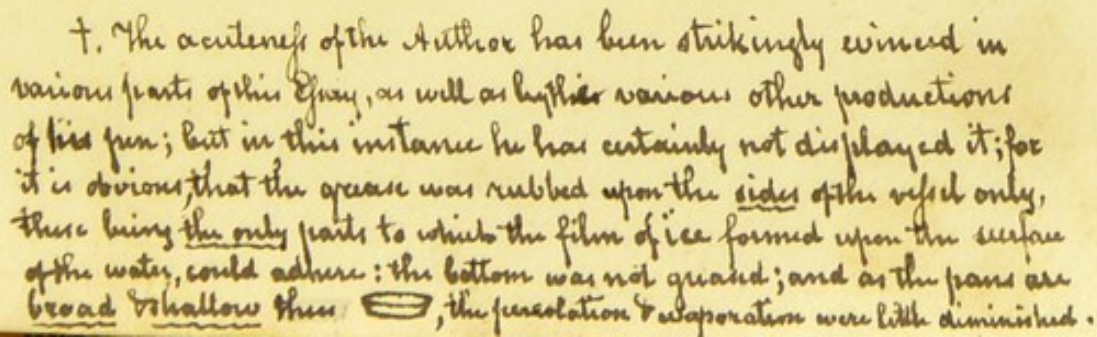 †. The acuteness of the Author has been strikingly evinced in
various parts of this Essay, as well as by the various other productions
of his pen; but in this instance he has certainly not displayed it; for
it is obvious, that the grease was rubbed upon the sides of the vessel only,
these being the only parts to which the film of ice formed upon the surface
of the water, could adhere: the bottom was not greased; and as the pans are
broad & shallow thus , the percolation & evaporation were little diminished.